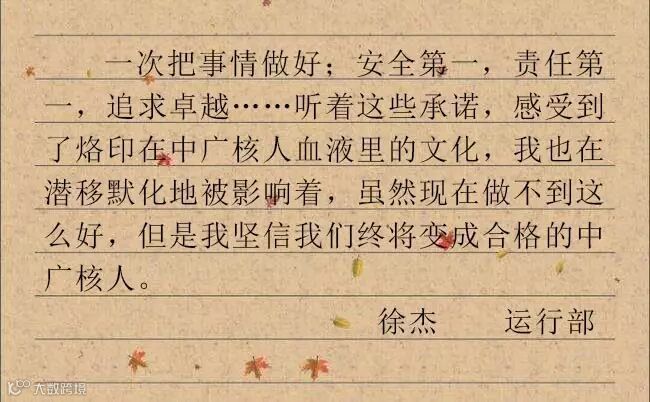 一次把事情做好；安全第一，责任第
一，追求卓越……听着这些承诺，感受到
了烙印在中广核人血液里的文化，我也在
潜移默化地被影响着，虽然现在做不到这
么好，但是我坚信我们终将变成合格的中
广核人。
徐杰 运行部
大数跨境